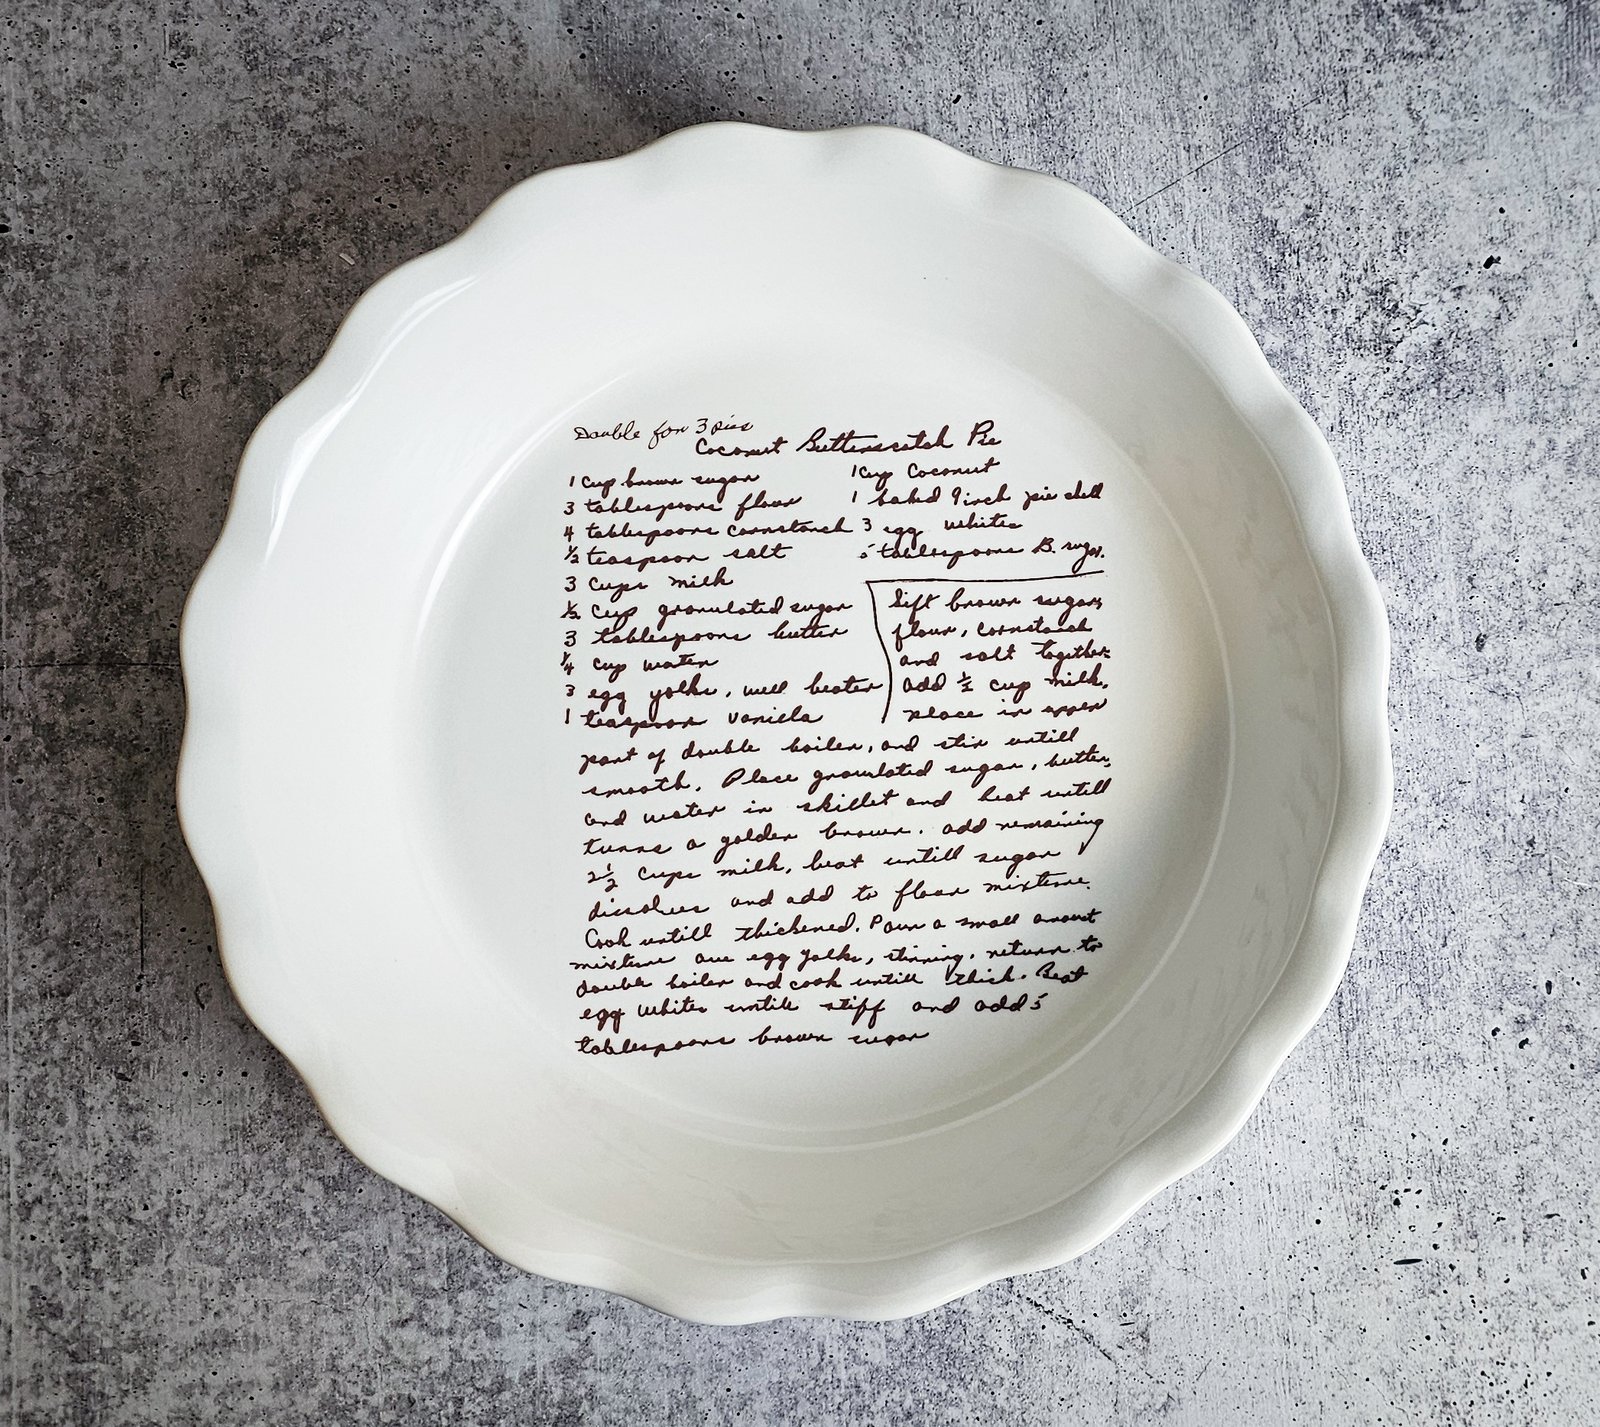 Double for 3 pies
Coconut Butterscotch Pie
1 cup brown sugar
3 tablespoons flour
4 tablespoons cornstarch
½ teaspoon salt
3 cups milk
½ cup granulated sugar
3 tablespoons butter
¼ cup water
3 egg yolks, well beaten
1 teaspoon vanilla
1 cup Coconut
1 baked 9 inch pie shell
3 egg whites
5 tablespoons B. sugar.
Sift brown sugar,
flour, cornstarch
and salt together.
add ½ cup milk,
place in upper
part of double boiler, and stir untill
smooth. Place granulated sugar, butter,
and water in skillet and heat untill
turns a golden brown. add remaining
2½ cups milk, heat untill sugar
dissolves and add to flour mixture.
Cook untill thickened. Pour a small amount
mixture over egg yolks, stirring. return to
double boiler and cook untill thick. Beat
egg whites untill stiff and add 5
tablespoons brown sugar